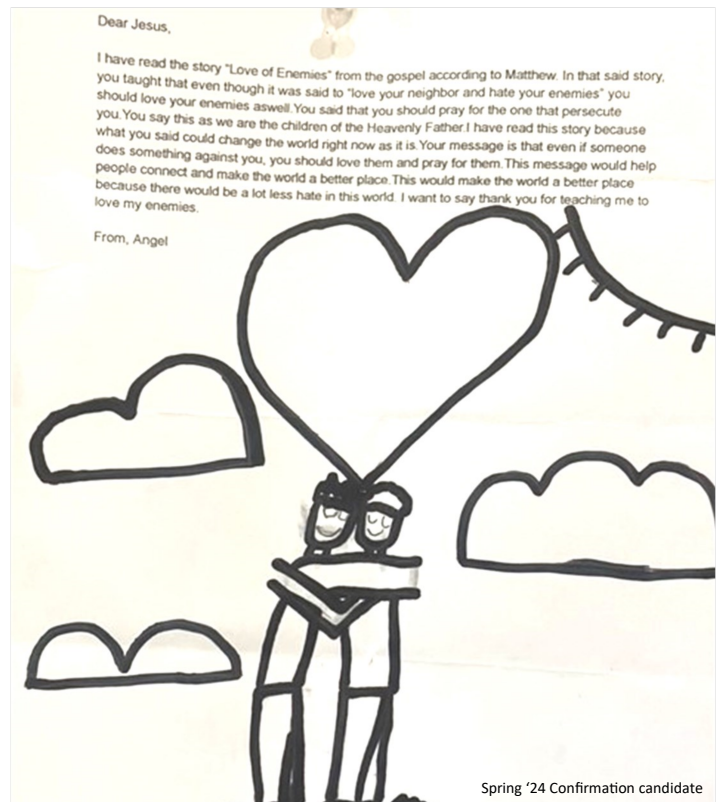 Dear Jesus,
I have read the story "Love of Enemies" from the gospel according to Matthew. In that said story,
you taught that even though it was said to "love your neighbor and hate your enemies" you
should love your enemies aswell.You said that you should pray for the one that persecute
you.You say this as we are the children of the Heavenly Father.I have read this story because
what you said could change the world right now as it is.Your message is that even if someone
does something against you, you should love them and pray for them.This message would help
people connect and make the world a better place.This would make the world a better place
because there would be a lot less hate in this world. I want to say thank you for teaching me to
love my enemies.
From, Angel
Spring '24 Confirmation candidate